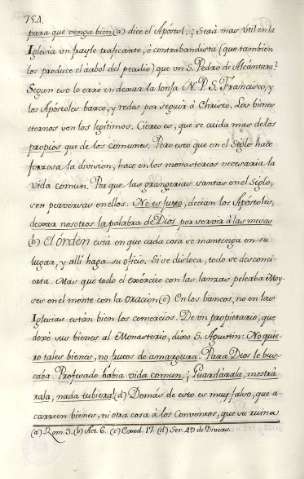 154.
para que venga bien (a) dice el Apóstol, ¿Será mas util en la
Iglesia un frayle traficante, ó contrabandista (que tambien
los produce el arbol del peculio) que un S. Pedro de Alcántara?
Segun eso le erraron en dexar la lonja N. P. S. Francisco, y
los Apóstoles barco, y redes por seguir á Christo. Los bienes
eternos son los legítimos. Cierto es, que se cuida mas de los
propios que de los comunes. Pero esto que en el Siglo hace
forzosa la division, hace en los monasterios necesaria la
vida comun. Porque las grangerias santas en el Siglo,
son perversas en ellos. No es justo, decian los Apóstoles,
dexar nosotros la palabra de Dios por servir á las mesas
(b) El orden está en que cada cosa se mantenga en su
lugar, y allí haga su oficio. Si se disloca, todo se descon-
cierta. Mas que todo el exército con las lanzas peleaba Moy-
ses en el monte con la oracion (c) En los bancos, no en las
Iglesias están bien los comercios. De un propietario, que
dexó sus bienes al Monasterio, dixo S. Agustin: No quie-
ro tales bienes, no frutos de amargura. Para Dios le bus-
caba. Profesado habia vida comun; Guardárala, mostrá-
rala, nada tubiera (d) Demás de esto es muy falso, que a-
carreen bienes, ni otra cosa á los Conventos, que su ruina
(a) Rom. 3. (b) Act. 6. (c) Exod. 17. (d) Ser. 49 de Divers.